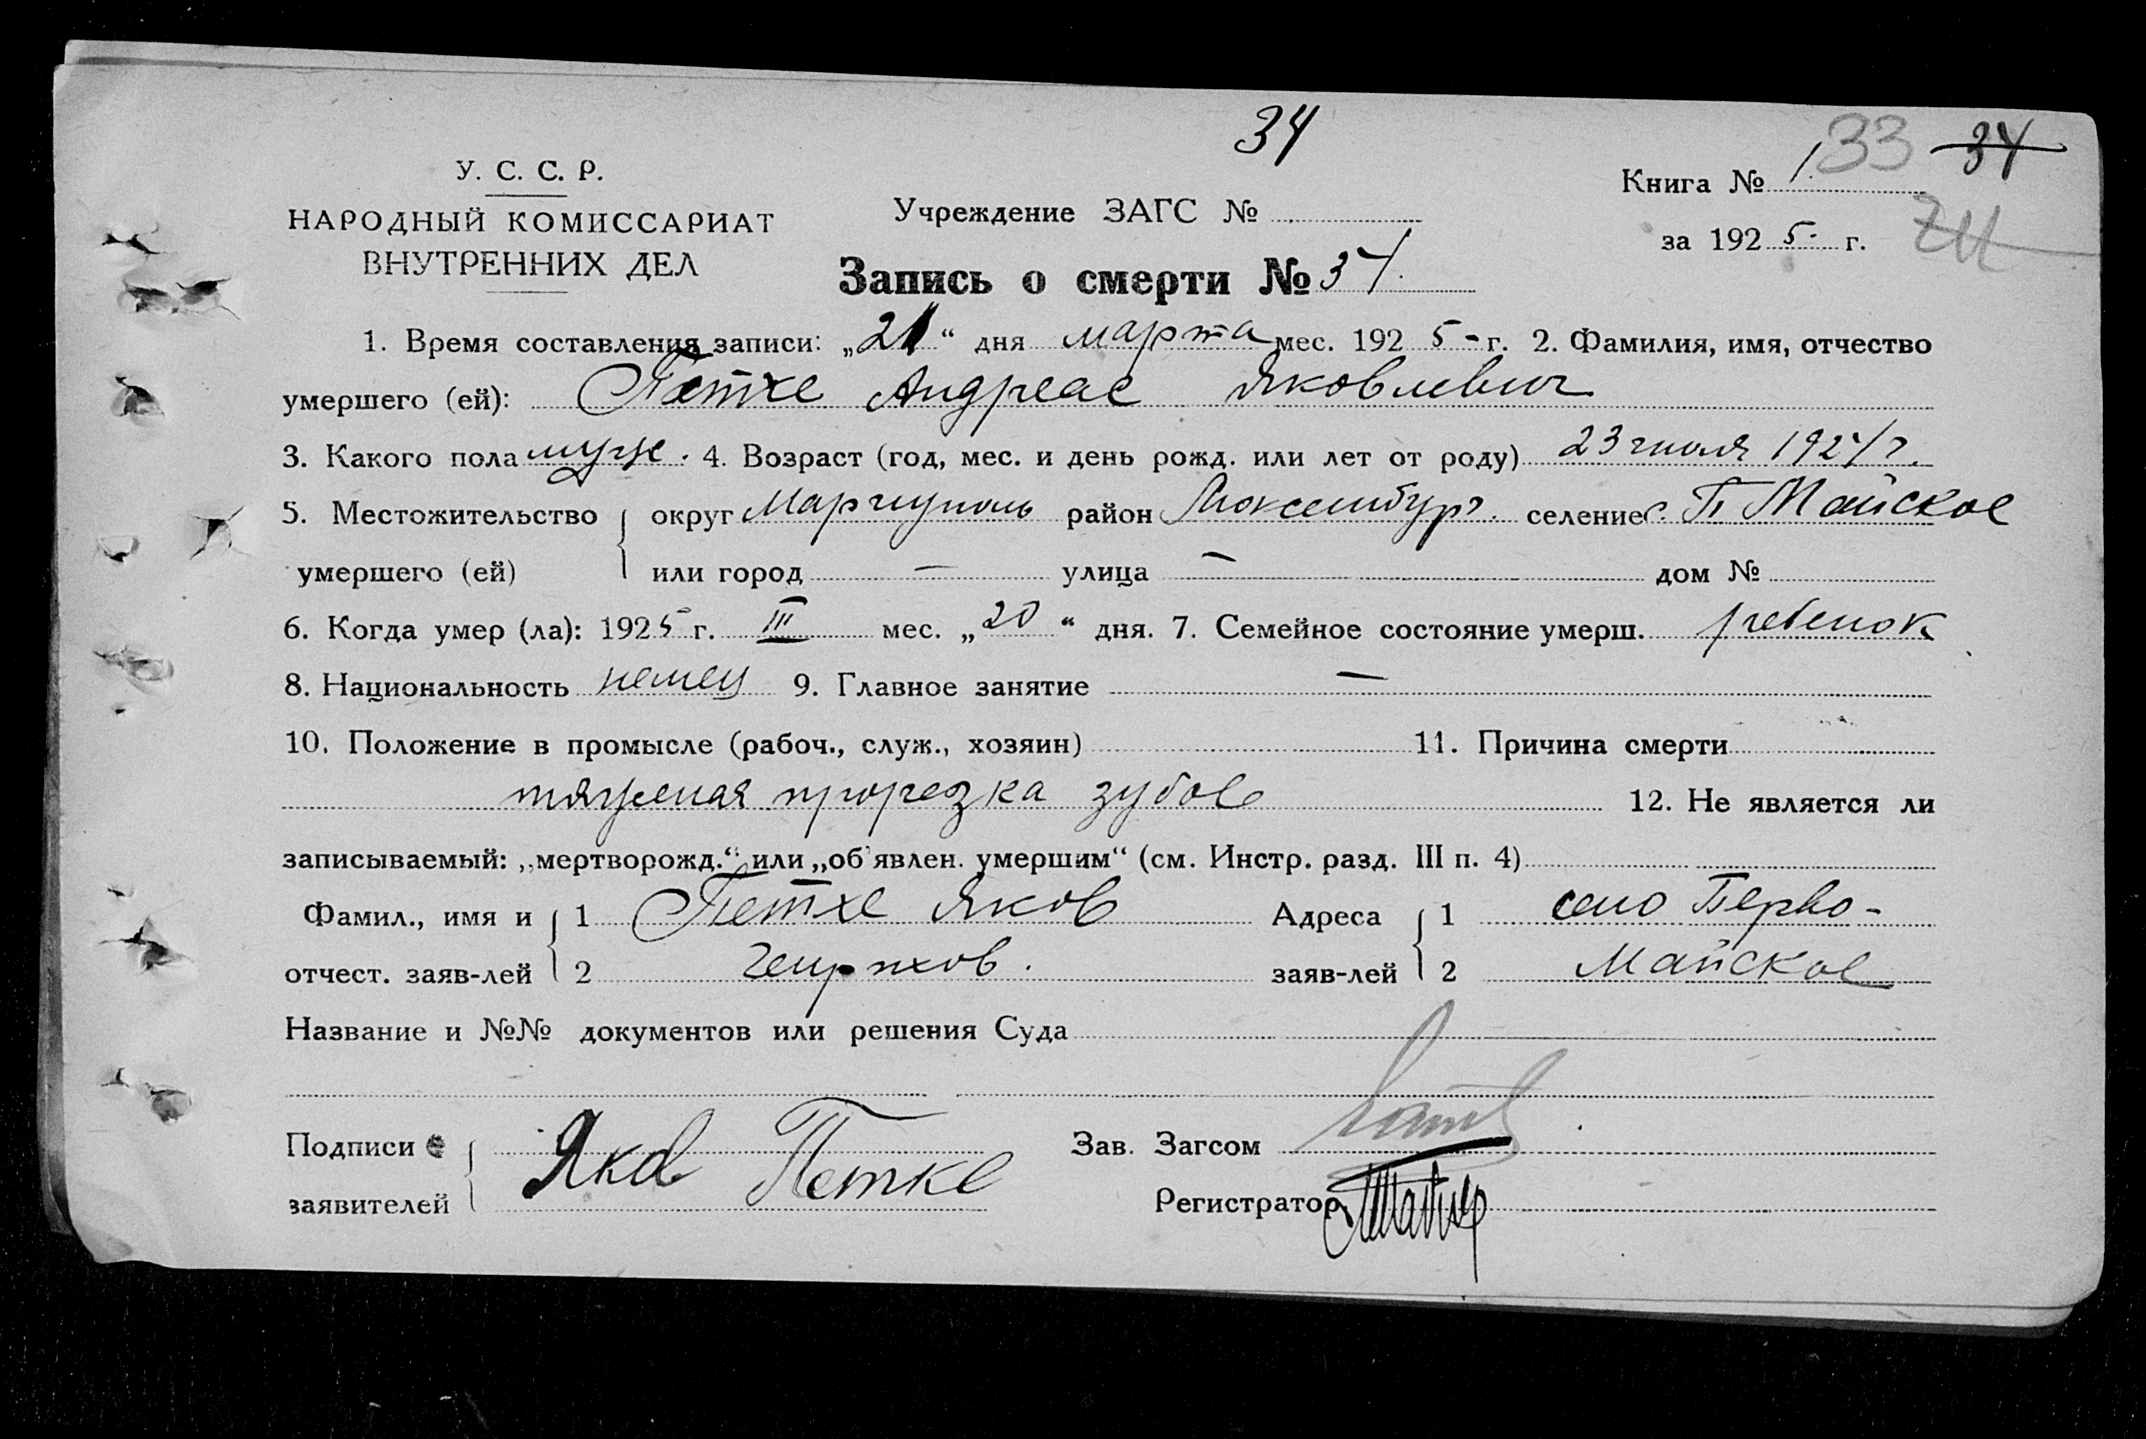 34
У. С. С. Р.
НАРОДНЫЙ КОМИССАРИАТ
ВНУТРЕННИХ ДЕЛ
Учреждение ЗАГС №
Книга № 1. 33 34
за 192 5 г.
Запись о смерти № 34.
1. Время составления записи: „21“ дня марта мес. 192 5 - г. 2. Фамилия, имя, отчество
умершего (ей): Петке Андреас Яковлевич
3. Какого пола муж. 4. Возраст (год, мес. и день рожд. или лет от роду) 23 июля 1924 г.
5. Местожительство округ Мариуполь район Люксембург. селение с. П Майское
умершего (ей) или город — улица — дом №
6. Когда умер (ла): 1925 г. III мес. „20“ дня. 7. Семейное состояние умерш. ребенок
8. Национальность немец 9. Главное занятие —
10. Положение в промысле (рабоч., служ., хозяин) 11. Причина смерти
тяжелая прорезка зубов 12. Не является ли
записываемый: „мертворожд.“ или „об'явлен. умершим“ (см. Инстр. разд. III п. 4)
Фамил., имя и 1 Петке Яков Адреса 1 село Перво-
отчест. заяв-лей 2 заяв-лей 2 Майское
Название и №№ документов или решения Суда
Подписи Яков Петке Зав. Загсом
заявителей Регистратор